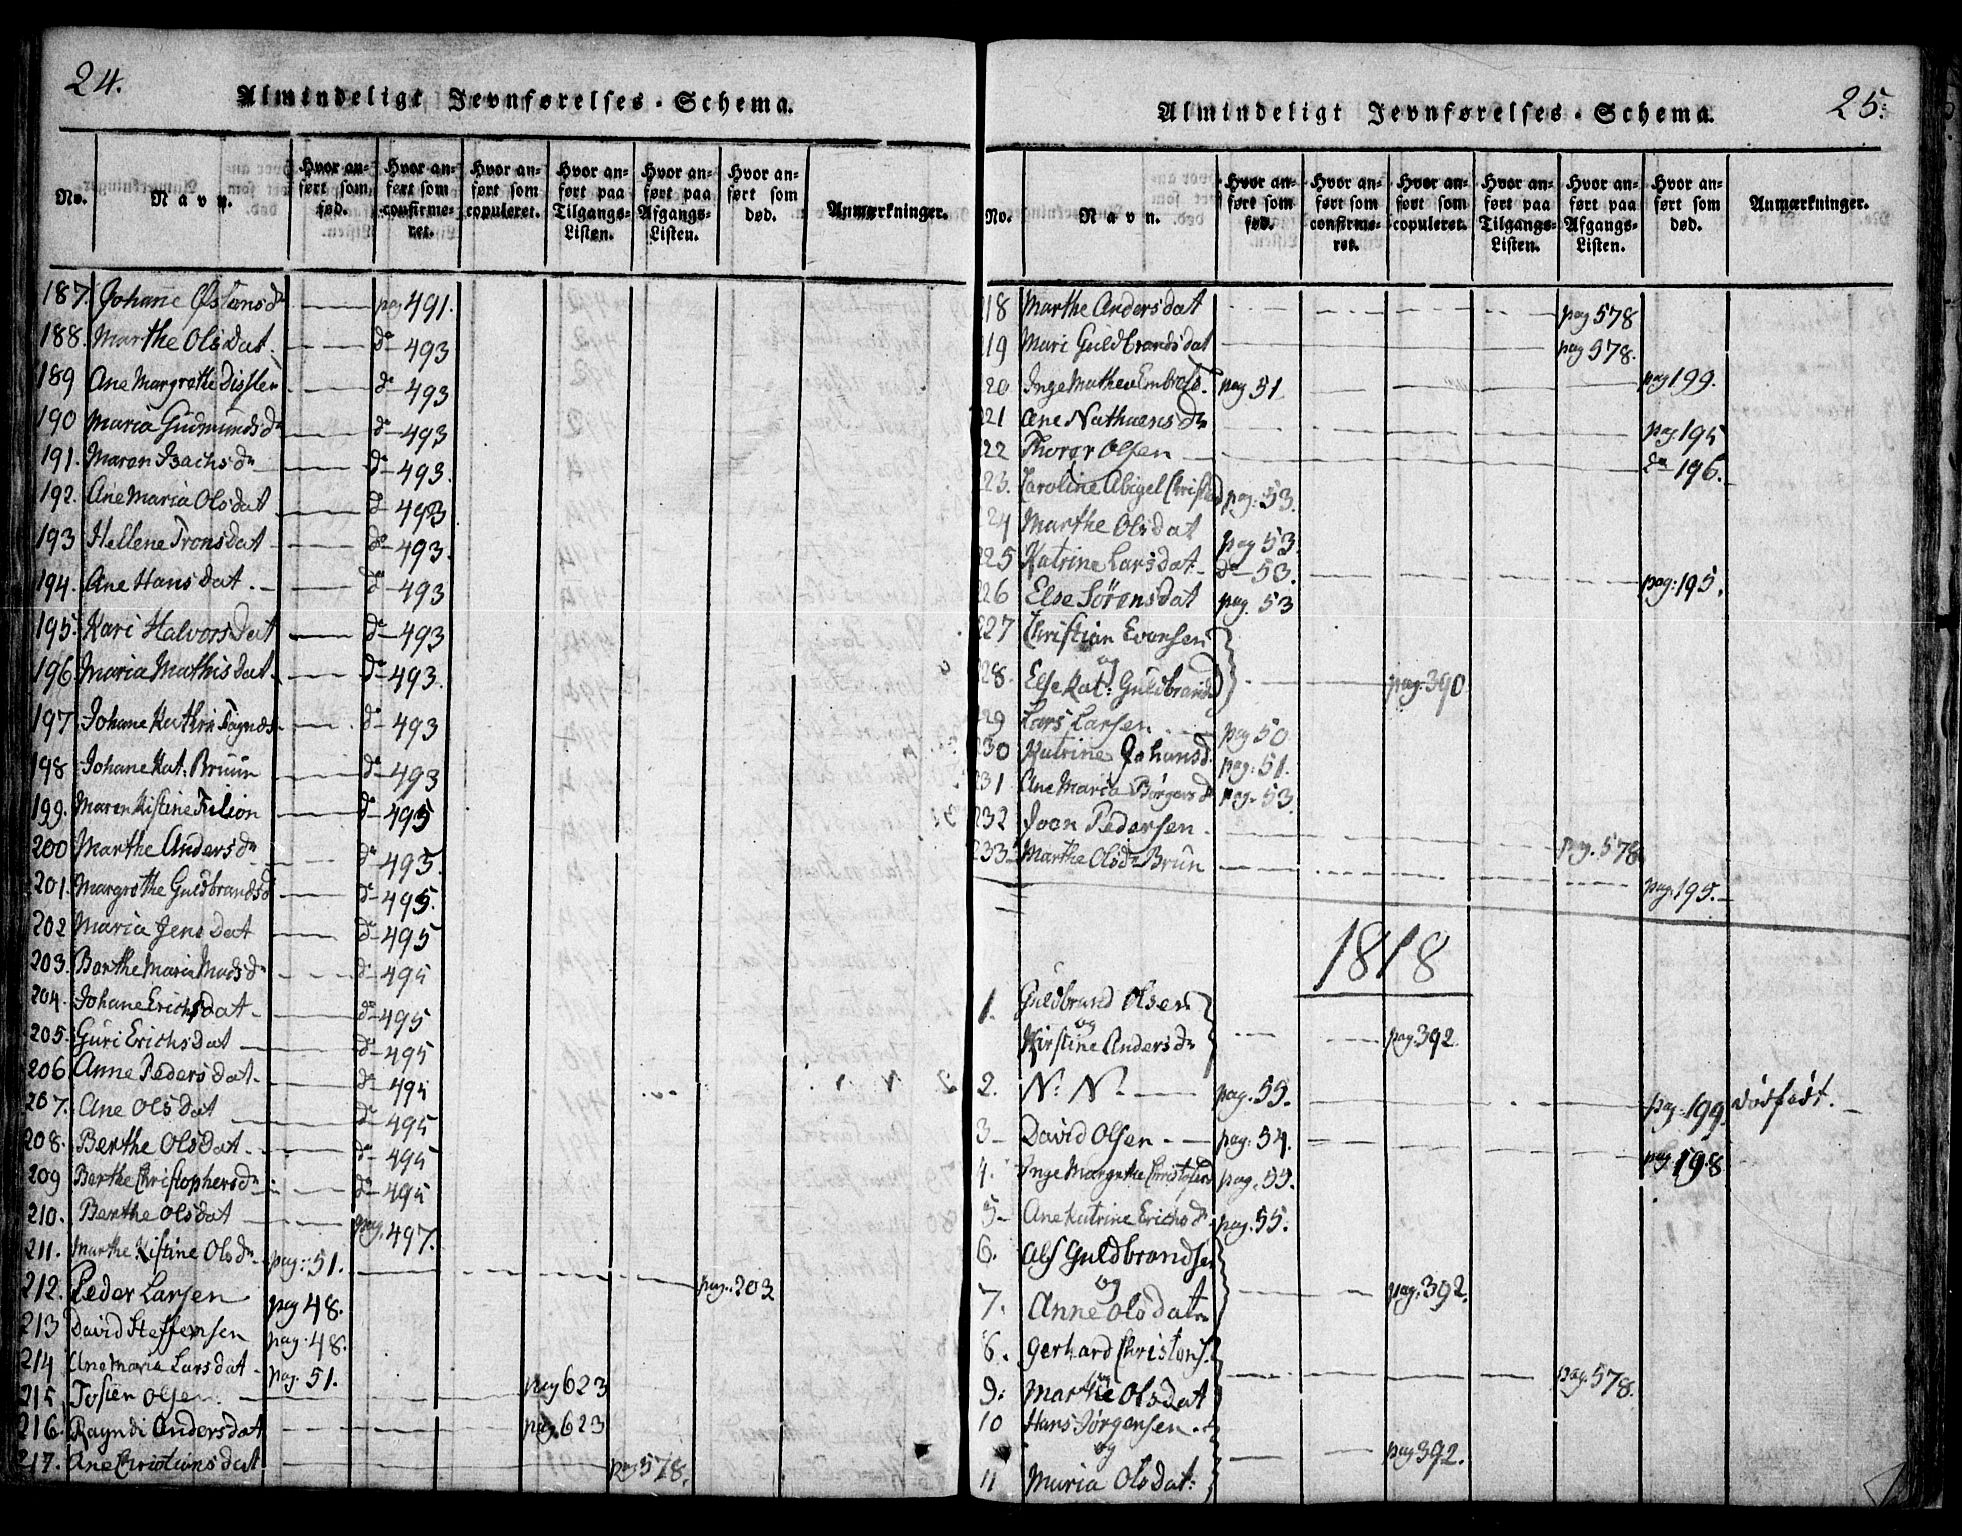 24.
Almindeligt Jevnførelses-Schema.
No. Navn. Hvor anført som fød. Hvor anført som confirmeret. Hvor anført som copuleret. Hvor anført paa Tilgangs-Listen. Hvor anført paa Afgangs-Listen. Hvor anført som død. Anmærkninger.
187. Johane Østensdr pag 491.
188. Marthe Olsdat do 493
189 Ane Margrethe Disslen do 493
190 Maria Gudmundsdr do 493
191. Maren Isachsdr do 493.
192. Ane Maria Olsdat do 493
193 Hellene Tronsdat do 493.
194. Ane Hansdat. do 493
195. Kari Halvorsdat do 493
196 Maria Mathisdat do 493.
197. Johane Kathrin do 493
198 Johane Kat: Bruun do 493
199. Maren Kistine do 495
200 Marthe Andersdr do 495.
201. Margrethe Guldbrandsd do 495.
202 Maria Jensdat do 495
203. Berthe Maria Madsdr do 495
204. Johane Erichsdat do 495
205. Guri Erichsdat do 495
206 Anne Pedersdat. do 495
207. Ane Olsdat do 495
208. Berthe Olsdat do 495
209 Berthe Christophersdr do 495
210. Berthe Olsdat pag 497.
211. Marthe Kistine Olsdr pag: 51. pag. 203
212. Peder Larsen pag 48.
213 David Steffensen pag. 48.
214 Ane Maria Larsdat pag. 51.
215 Olsen pag 623
216. Rayndi Andersdat pag. 623
217. Ane Christiansdat pag 578.
25.
Almindeligt Jevnførelses-Schema.
No. Navn. Hvor anført som fød. Hvor anført som confirmeret. Hvor anført som copuleret. Hvor anført paa Tilgangs-Listen. Hvor anført paa Afgangs-Listen. Hvor anført som død. Anmærkninger.
218 Marthe Andersdat pag 578
219 Mari Guldbrandsdat pag 578.
220 Inge Mathea pag 51 pag 199.
221 Ane Nathaensdr pag. 195
222 Thorer Olsen do 196.
223. Caroline Abigel pag: 53.
224 Marthe Olsdat pag 53
225 Katrine Larsdat do 53. pag: 195.
226 Else Sørensdat pag. 53
227 Christian Evensen
og
228. Else Kat: Guldbrands pag. 390
229 Lars Larsen pag 50
230 Katrine Johansd. pag: 51.
231 Ane Maria Børgersdr pag. 53
232 Joon Pedersen. pag. 578
233 Marthe Olsdr Brun pag. 195.
1818
1. Guldbrand Olsen
og
Kirstine Andersdr pag 392.
2. N. N. pag. 55. pag. 199 Dødfødt.
3 David Olsen pag. 54. pag 198
4. Inge Margrethe pag. 55.
5 Ane Katrine Erichsdr pag. 55.
6. Ols Guldbrandsen
og
7. Anne Olsdat pag. 392.
8. Gerhard Christens.
og
9. Marthe Olsdat pag. 578.
10 Hans Jørgensen.
og
11 Maria Olsdat: pag 392.